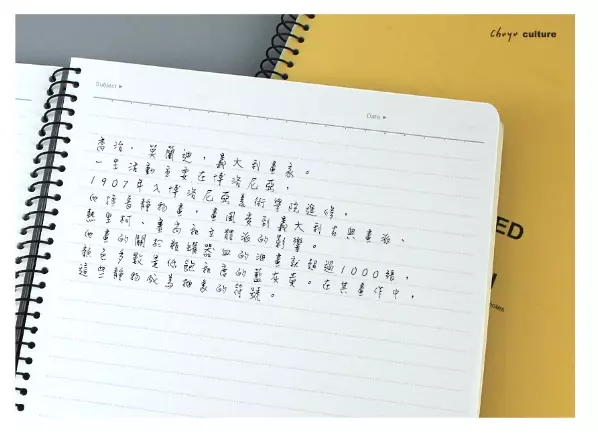 Chuyu culture
Subject ▸
Date ▸
喬治·莫蘭迪，義大利畫家。
一生活動主要在博洛尼亞，
1907年入博洛尼亞美術學院進修，
靜物畫，畫風受到義大利古典畫派、
里柯、塞尚和立體派的影響。
他畫的關於瓶罐器皿的油畫就超過1000張，
顏色多數是低飽和度的藍灰黃。在其畫作中，
這些靜物成為抽象的符號。
ED